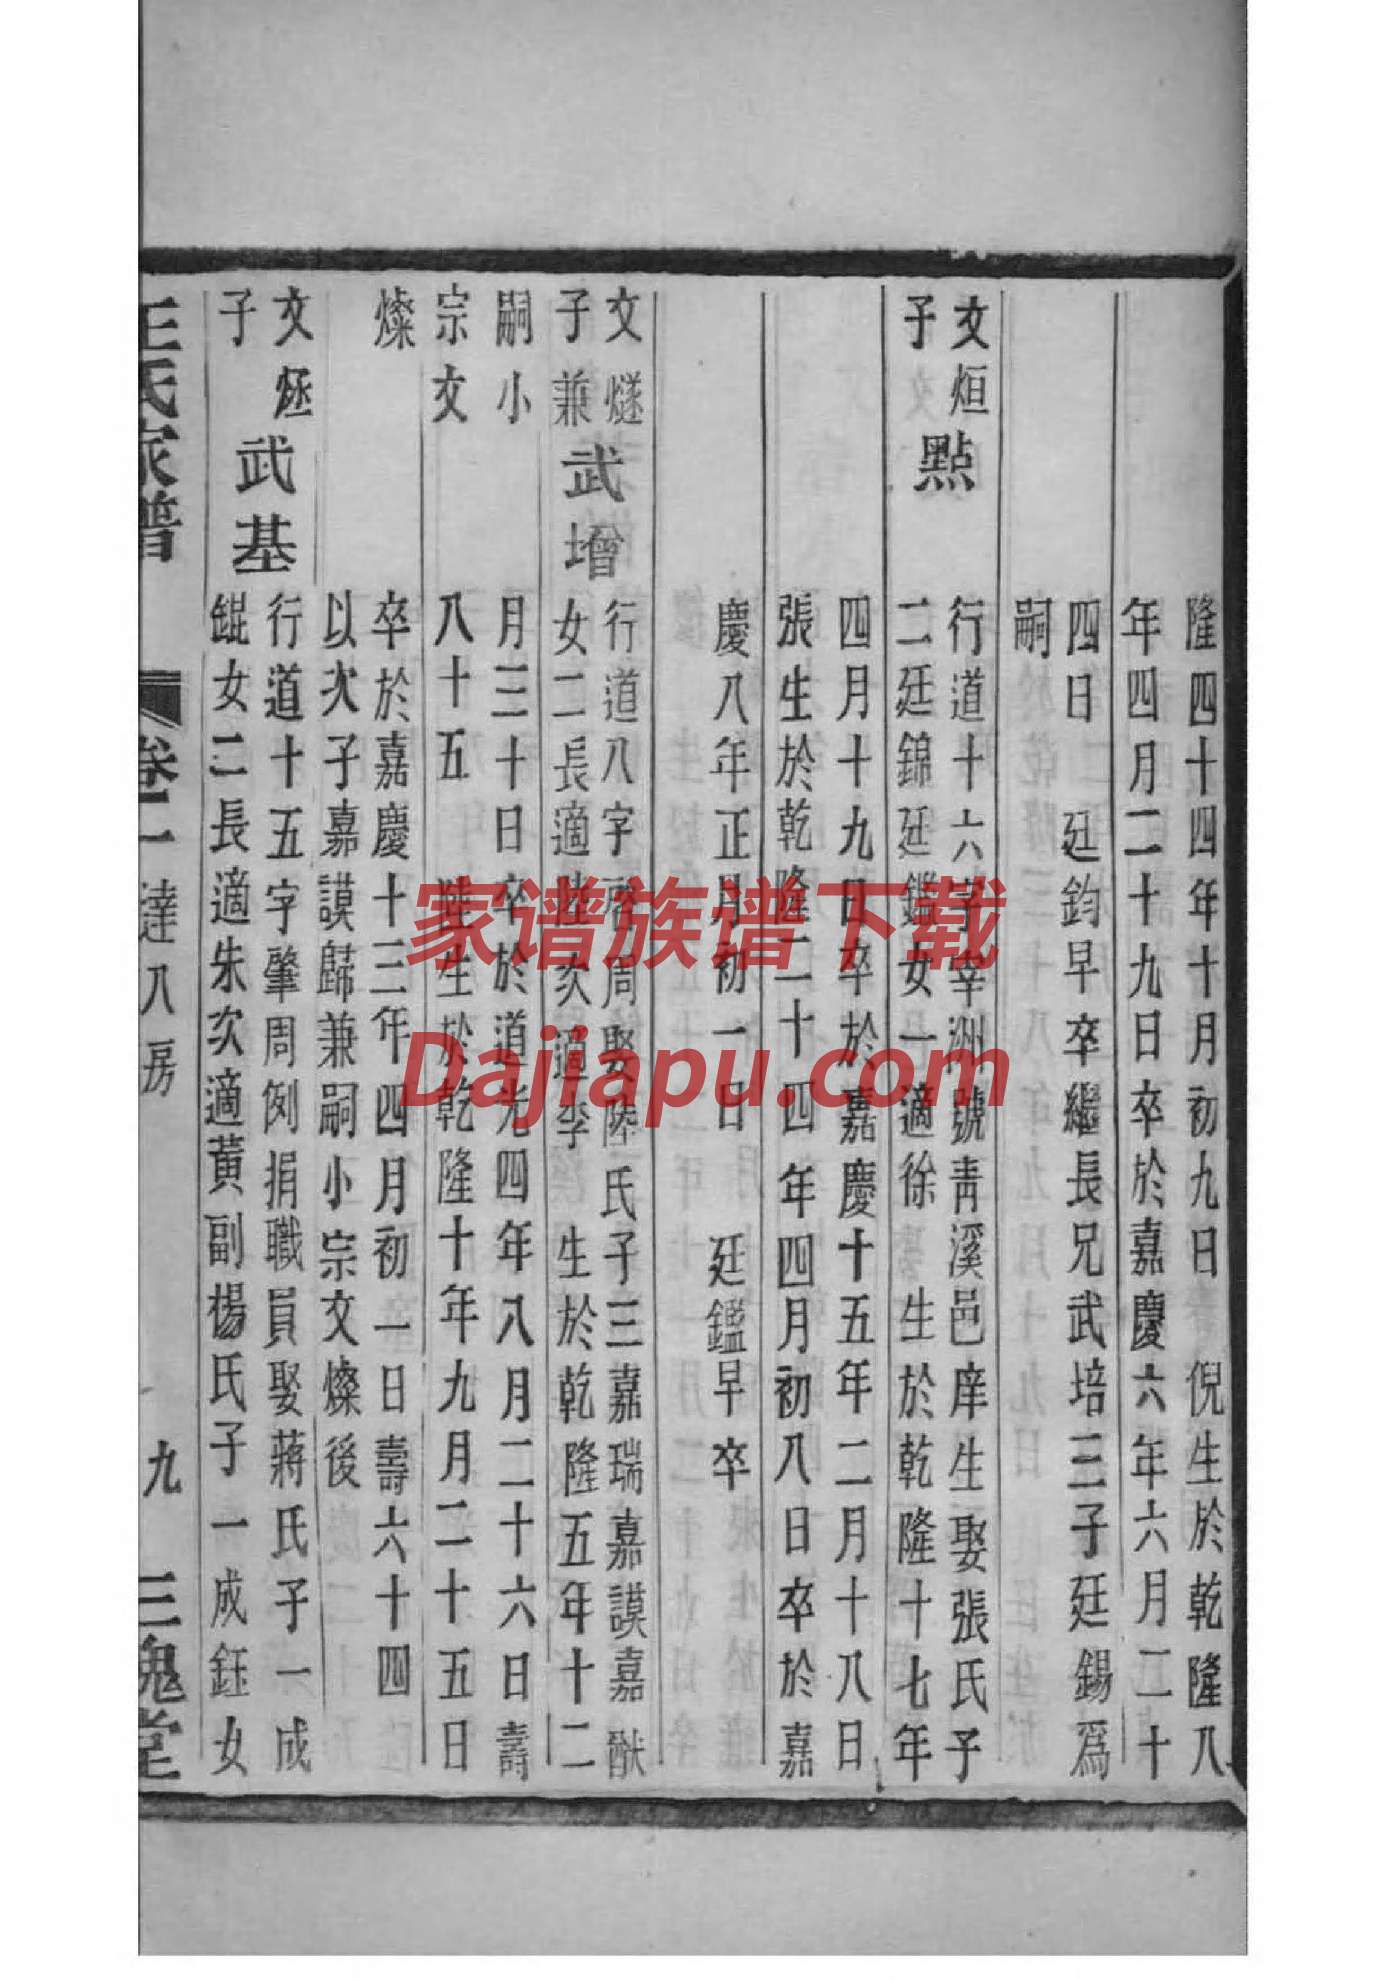 隆四十四年十月初九日　倪生於乾隆八
年四月二十九日卒於嘉慶六年六月二十
四日　廷鈞早卒繼長兄武培三子廷錫爲
嗣
文烜
子
點
行道十六字宰洲號青溪邑庠生娶張氏子
二廷錦廷鑑女一適徐　生於乾隆十七年
四月十九日卒於嘉慶十五年二月十八日
張生於乾隆二十四年四月初八日卒於嘉
慶八年正月初一日　廷鑑早卒
文燧
子兼
嗣小
宗文
燦
武增
行道八字啓周娶陸氏子三嘉瑞嘉謨嘉猷
女二長適陸次適李　生於乾隆五年十二
月三十日卒於道光四年八月二十六日壽
八十五　陸生於乾隆十年九月二十五日
卒於嘉慶十三年四月初一日壽六十四
以次子嘉謨歸兼嗣小宗文燦後
文烝
子
武基
行道十五字肇周例捐職員娶蔣氏子一成
錕女二長適朱次適黃副楊氏子一成鈺女
王氏家譜
卷二　達八房
九
三槐堂
家谱族谱下载
Dajiapu.com